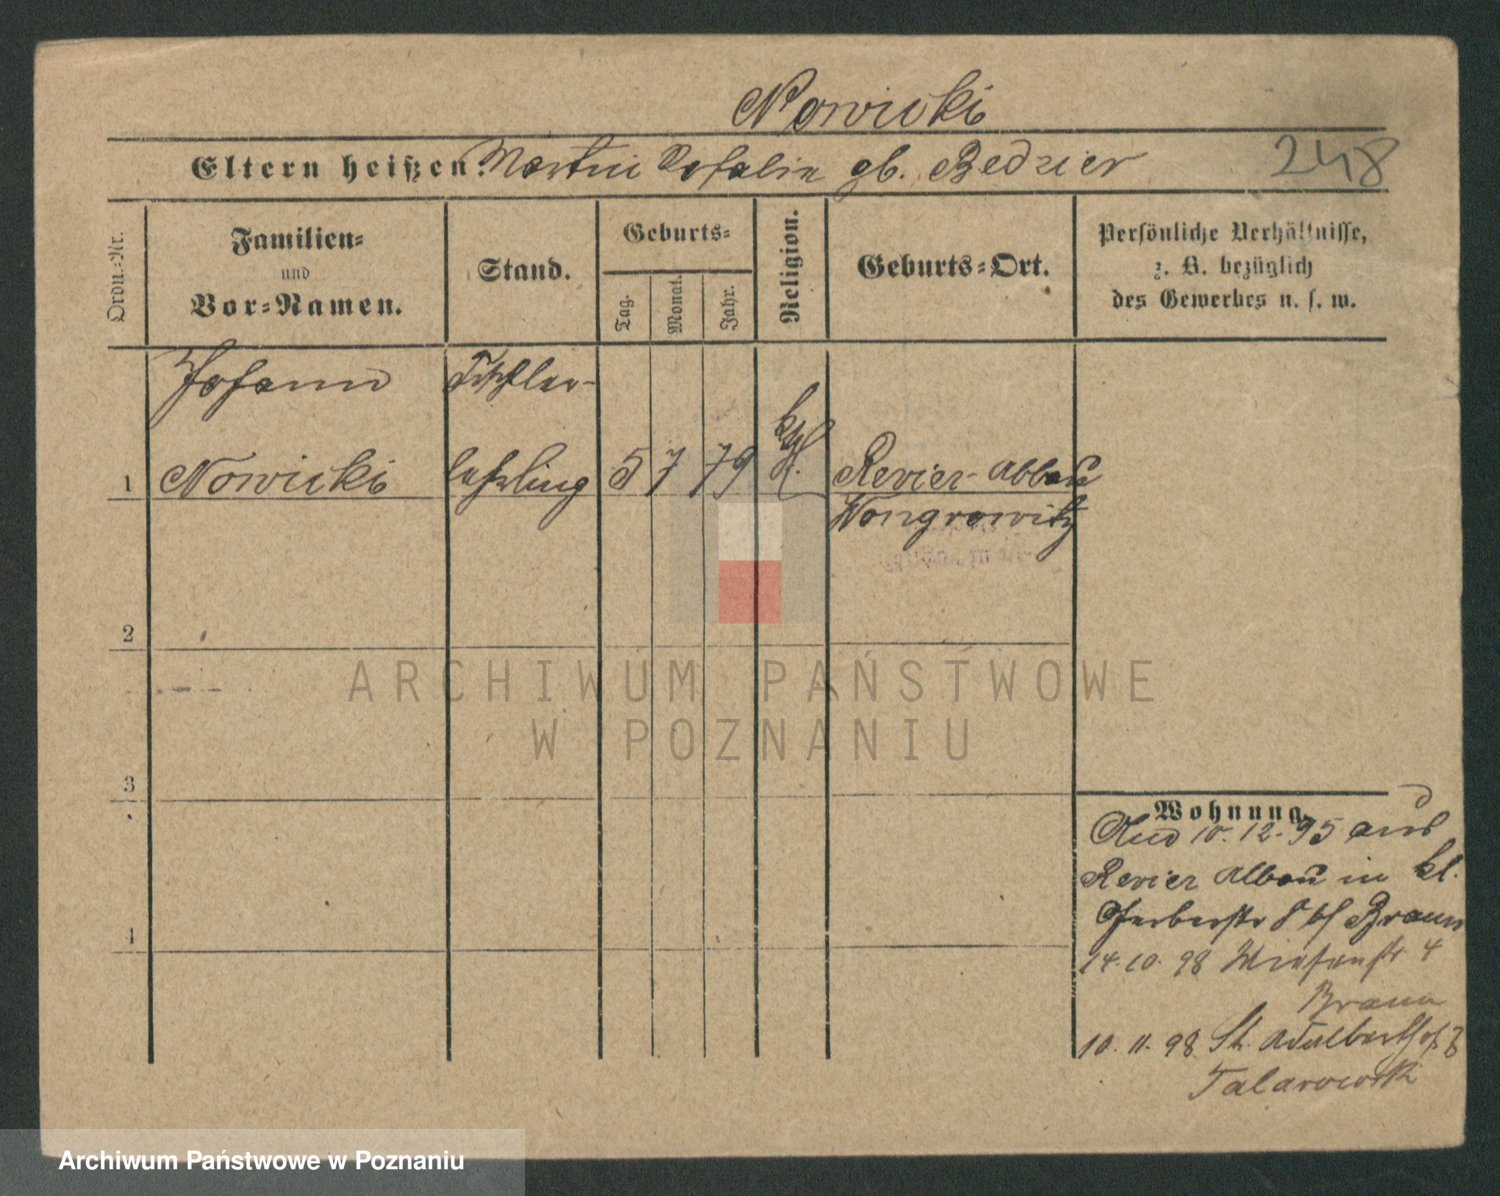 Nowicki
248
Eltern heißen: Martin Rosalia gb. Bedzier
Ordn.-Nr.
Familien-
und
Vor-Namen.
Stand.
Geburts-
Tag.
Monat.
Jahr.
Religion.
Geburts-Ort.
Persönliche Verhältnisse,
z. B. bezüglich
des Gewerbes u. s. w.
Johann Tischler-
1 Nowicki lehrling 5 7 79 Revier-Abbau
Wongrowitz
2
3
4
Wohnung.
10.12.95 aus
Revier Abbau in kl.
Gerberstr 8 bf Braun
14.10.98 Wiesenstr 4
Braun
10.11.98 St. Adalberthof 3
Talarowski
ARCHIWUM PAŃSTWOWE
W POZNANIU
Archiwum Państwowe w Poznaniu